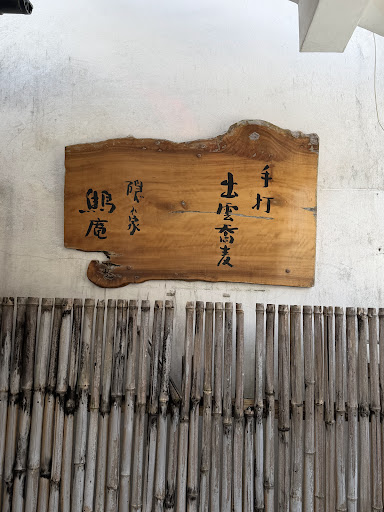 手打
出雲喬麦
隠れ家
庵